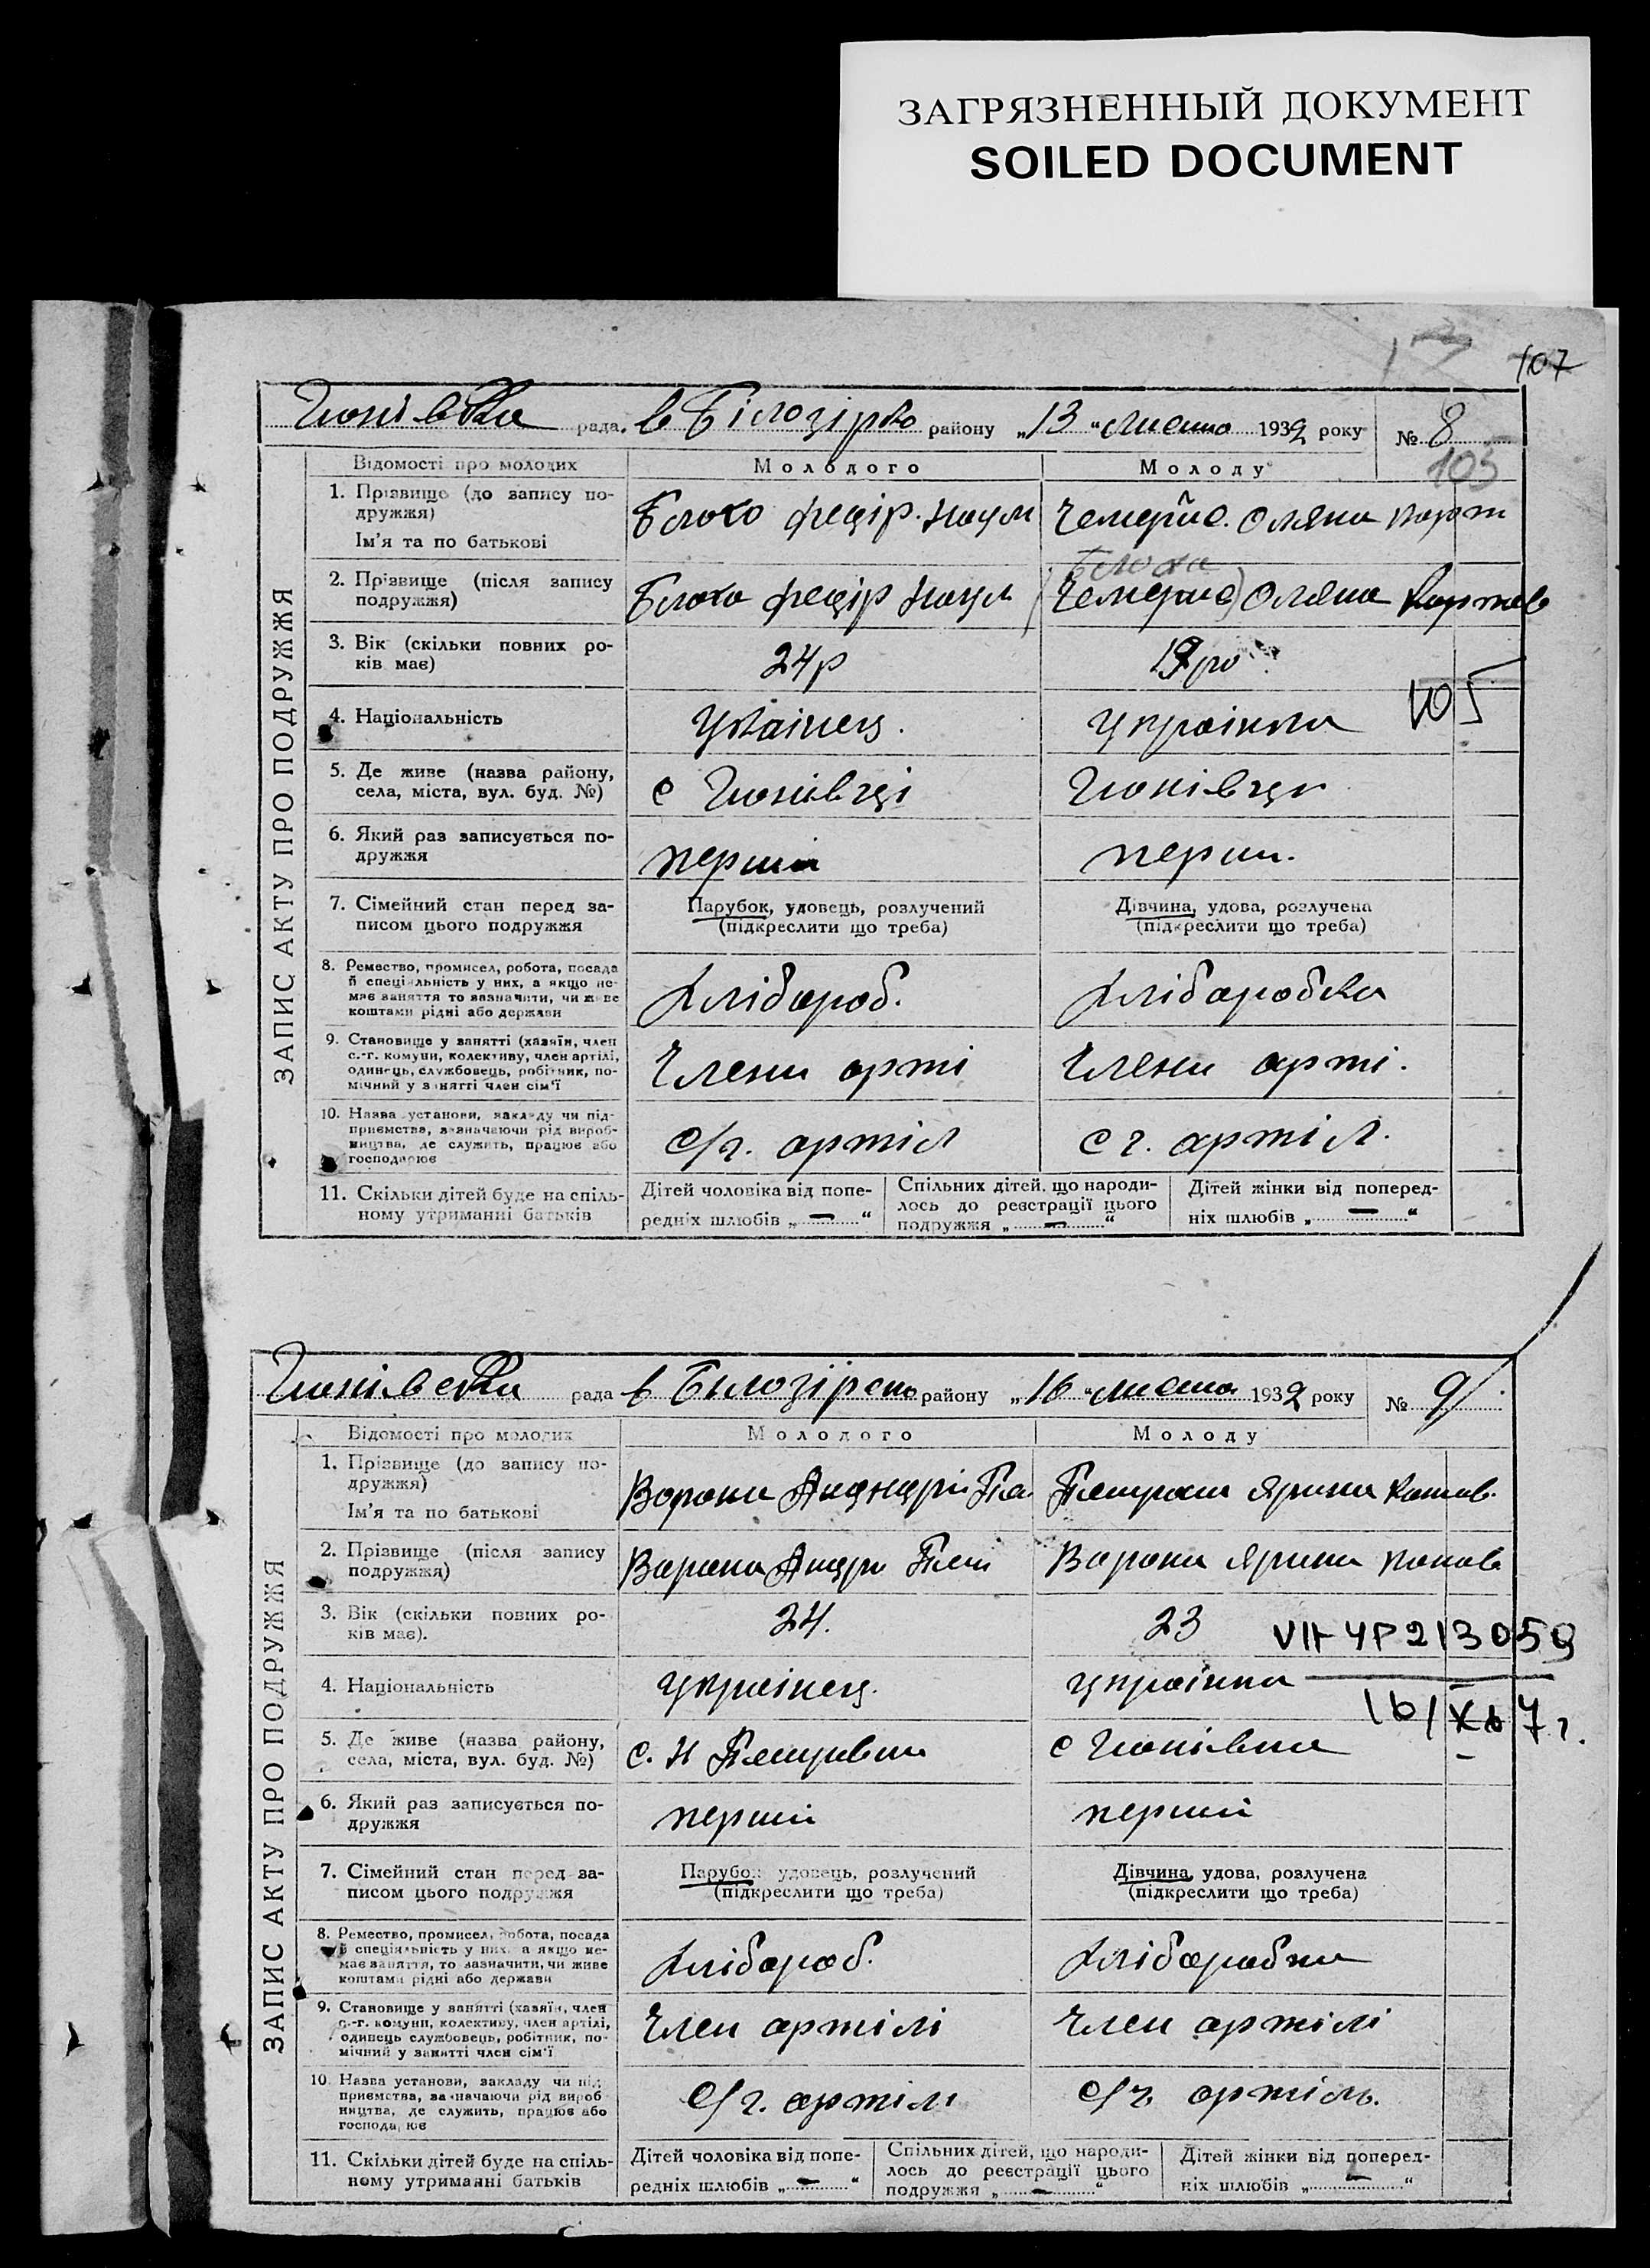 ЗАГРЯЗНЕННЫЙ ДОКУМЕНТ
SOILED DOCUMENT
17 107
рада. в району „13“ 1932 року № 8
105
Відомості про молодих Молодого Молоду
1. Прізвище (до запису по-
дружжя)
Ім'я та по батькові
Федір. Наум Оляна
2. Прізвище (після запису
подружжя)
Федір Наум Оляна
3. Вік (скільки повних ро-
ків має)
24р
4. Національність
українка 105
5. Де живе (назва району,
села, міста, вул. буд. №)
с
6. Який раз записується по-
дружжя
перший перш.
7. Сімейний стан перед за-
писом цього подружжя
Парубок, удовець, розлучений
(підкреслити що треба)
Дівчина, удова, розлучена
(підкреслити що треба)
8. Ремество, промисел, робота, посада
й спеціяльність у них, а якщо не-
має заняття то зазначити, чи живе
коштами рідні або держави
Хлібороб. Хліборобка
9. Становище у занятті (хазяїн, член
с.-г. комуни, колективу, член артілі,
одинець, службовець, робітник, по-
мічний у занятті член сім'ї
Члени арті Члени арті.
10. Назва установи, закладу чи під-
приємства, зазначаючи рід вироб-
ництва, де служить, працює або
господарює
с/г. артіл с г. артіл.
11. Скільки дітей буде на спіль-
ному утриманні батьків
Дітей чоловіка від попе-
редніх шлюбів „ — “
Спільних дітей, що народи-
лось до реєстрації цього
подружжя „ — “
Дітей жінки від поперед-
ніх шлюбів „ — “
ЗАПИС АКТУ ПРО ПОДРУЖЖЯ
рада в району „16“ 1932 року № 9
Відомості про молодих Молодого Молоду
1. Прізвище (до запису по-
дружжя)
Ім'я та по батькові
Ворона Ярина
2. Прізвище (після запису
подружжя)
Ворона Ворона Ярина
3. Вік (скільки повних ро-
ків має).
24. 23
4. Національність
українец. українка
5. Де живе (назва району,
села, міста, вул. буд. №)
с. Н с
6. Який раз записується по-
дружжя
перший перший
7. Сімейний стан перед за-
писом цього подружжя
Парубок удовець, розлучений
(підкреслити що треба)
Дівчина, удова, розлучена
(підкреслити що треба)
8. Ремество, промисел, робота, посада
й спеціяльність у них, а якщо не-
має заняття, то зазначити, чи живе
коштами рідні або держави
Хлібороб. Хліборобка
9. Становище у занятті (хазяїн, член
с.-г. комуни, колективу, член артілі,
одинець службовець, робітник, по-
мічний у занятті член сім'ї
Член артілі Член артілі
10. Назва установи, закладу чи під-
приємства, зазначаючи рід вироб-
ництва, де служить, працює або
господарює
с/г. артіл с/г. артіль.
11. Скільки дітей буде на спіль-
ному утриманні батьків
Дітей чоловіка від попе-
редніх шлюбів „ — “
Спільних дітей, що народи-
лось до реєстрації цього
подружжя „ — “
Дітей жінки від поперед-
ніх шлюбів „ — “
ЗАПИС АКТУ ПРО ПОДРУЖЖЯ